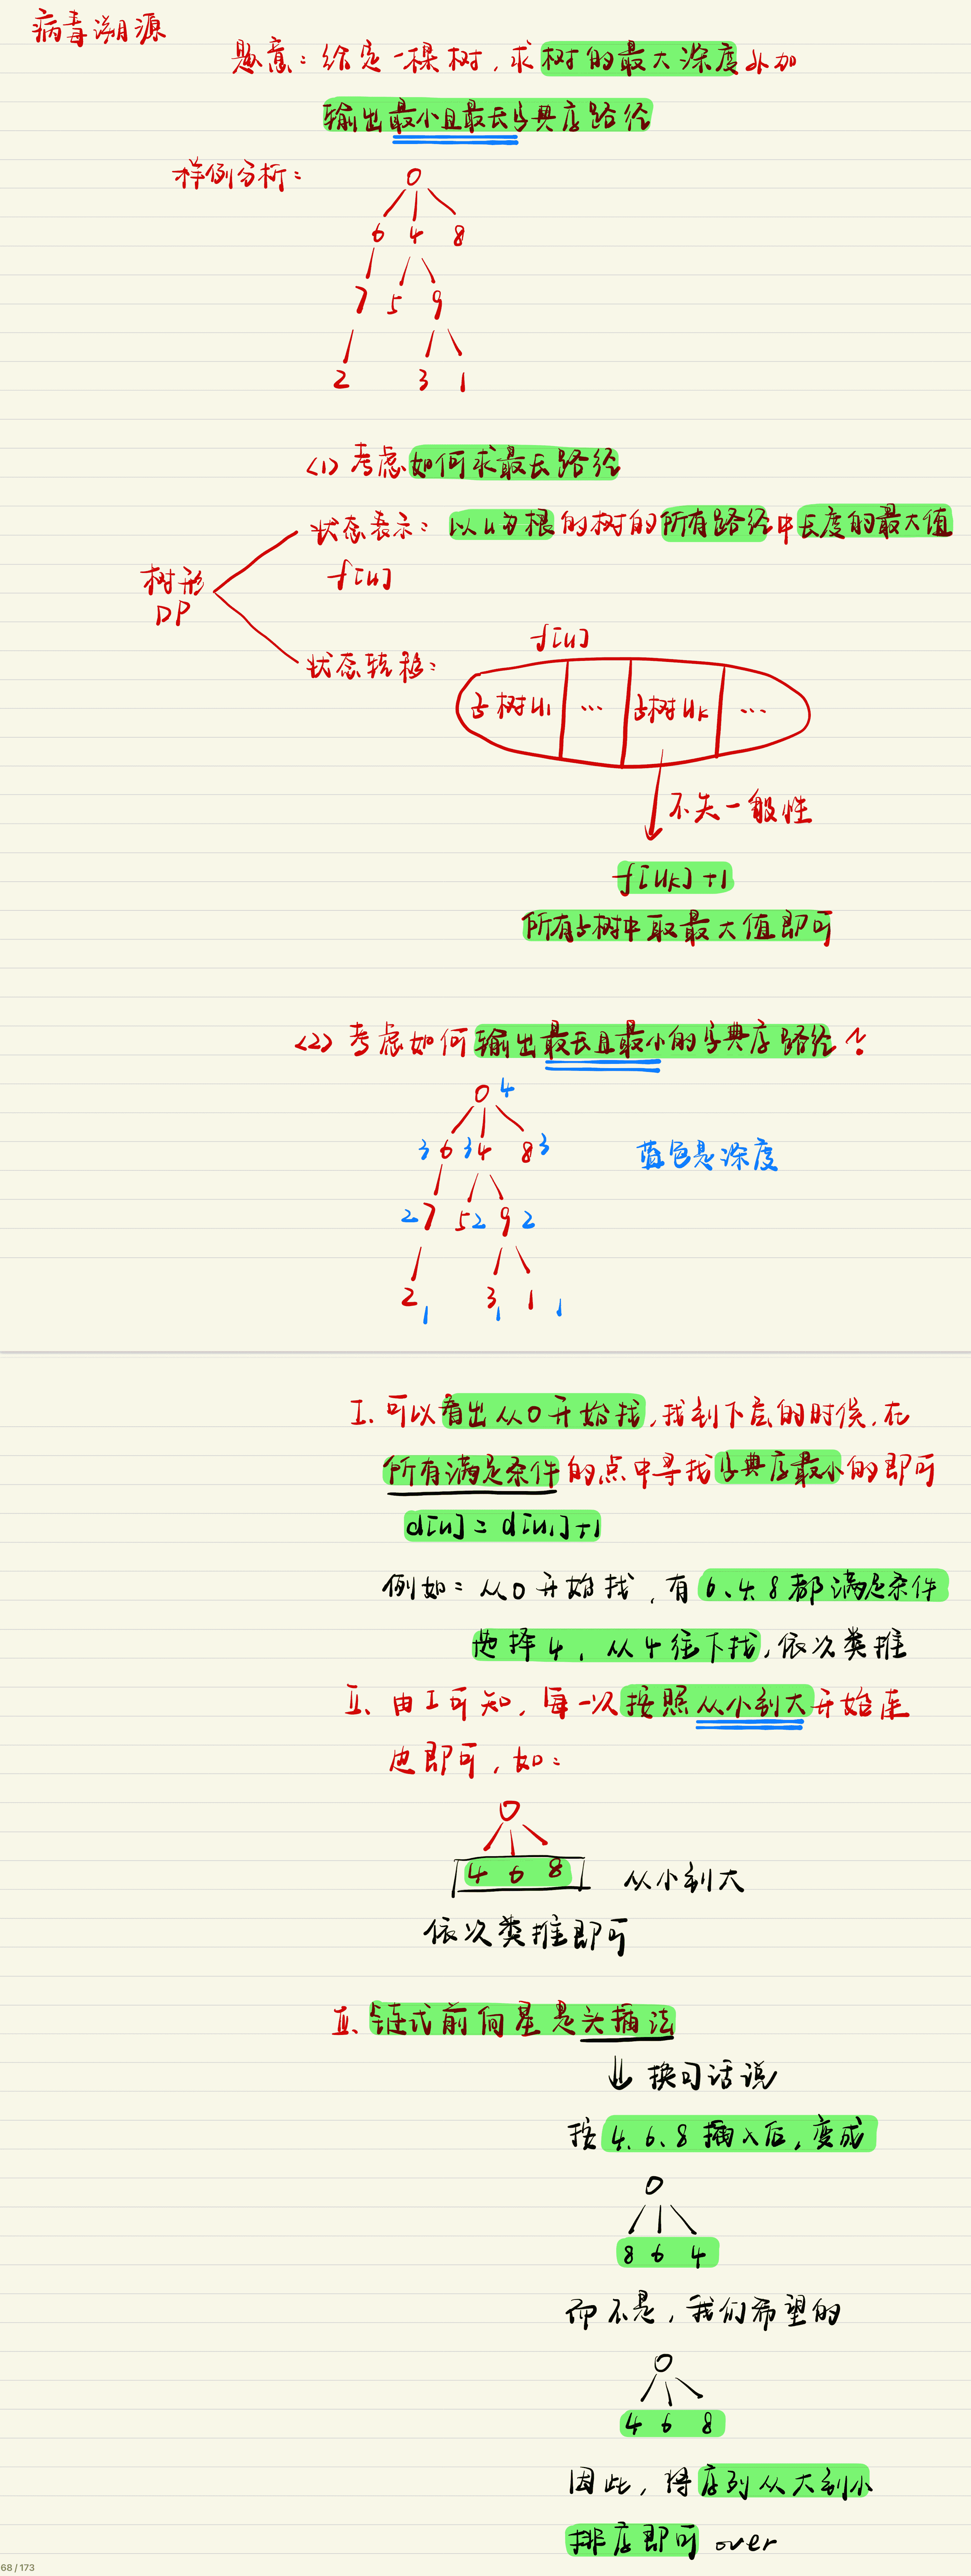 病毒溯源
题意：给定一棵树，求树的最大深度外加
输出最小且最长字典序路径
样例分析：
0
6 4 8
7 5 9
2 3 1
<1> 考虑如何求最长路径
状态表示：以u为根的树的所有路径中长度的最大值
f[u]
树形
DP
f[u]
状态转移：
子树u1 … 子树uk …
不失一般性
f[uk]+1
所有子树中取最大值即可
<2> 考虑如何输出最长且最小的字典序路径？
0 4
3 6 3 4 8 3
2 7 5 2 9 2
2 1 3 1 1 1
蓝色是深度
I. 可以看出从0开始找，找到下层的时候，在
所有满足条件的点中寻找字典序最小的即可
d[u] = d[ui]+1
例如：从0开始找，有6、4、8都满足条件
选择4，从4往下找，依次类推
II、由I可知，每一次按照从小到大开始连
边即可，如：
0
4 6 8
从小到大
依次类推即可
II、链式前向星是头插法
换句话说
按4、6、8插入后，变成
0
8 6 4
而不是，我们希望的
0
4 6 8
因此，将序列从大到小
排序即可 over
68 / 173